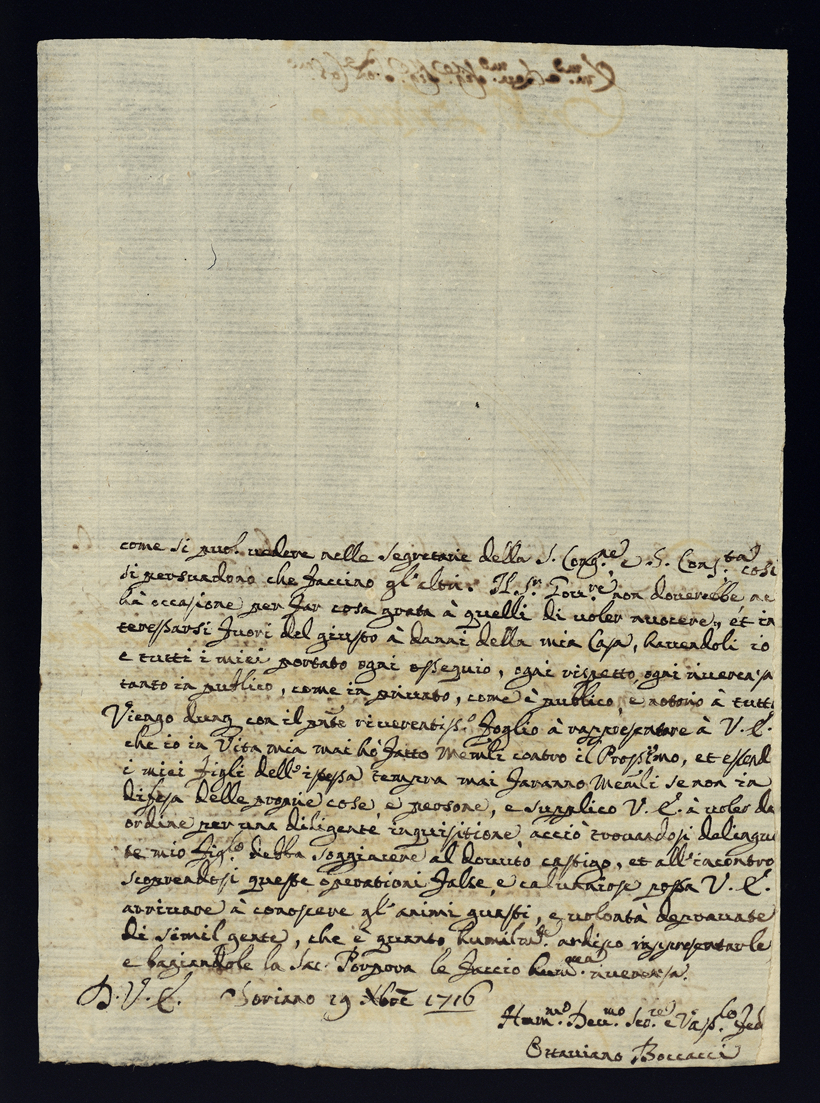 come si puol vedere nelle segretarie della S. Cong.ne e S. Cons.ta così
si persuadono che faccino gl'altri. Il S.r Gov.re non doverebbe ne
hà occasione per far cosa grata à quelli di voler nuocere, et in
teressarsi fuori del giusto à danni della mia Casa, havendoli io
e tutti i miei portato ogni ossequio, ogni rispetto, ogni riverenza
tanto in publico, come in privato, come è publico, e notorio à tutti
Vengo dunq con il pnte riverentiss.o foglio à rappresentare à V. E.
che io in Vita mia mai hò fatto Memli contro il Prossimo, et essend
i miei figli dell'istessa tempra mai faranno Memli se non in
difesa delle proprie cose e persone, e supplico V. E. à voler da
ordine per una diligente inquisitione acciò trovandosi delinque
te mio figl.o debba soggiacere al dovuto castigo, et all'incontro
scoprendosi queste operationi false, e calunniose possa V. E.
arrivare à conoscere gl'animi guasti, e volontà depravate
di simil gente, che è quanto humilm.te ardisco rappresentarle
e baciandole la Sac. Porpora le faccio hum.ma riverenza.
D. V. E. Soriano 19 Xbre 1716
Humm.mo Dev.mo Ser.re
Ottaviano Boccacci